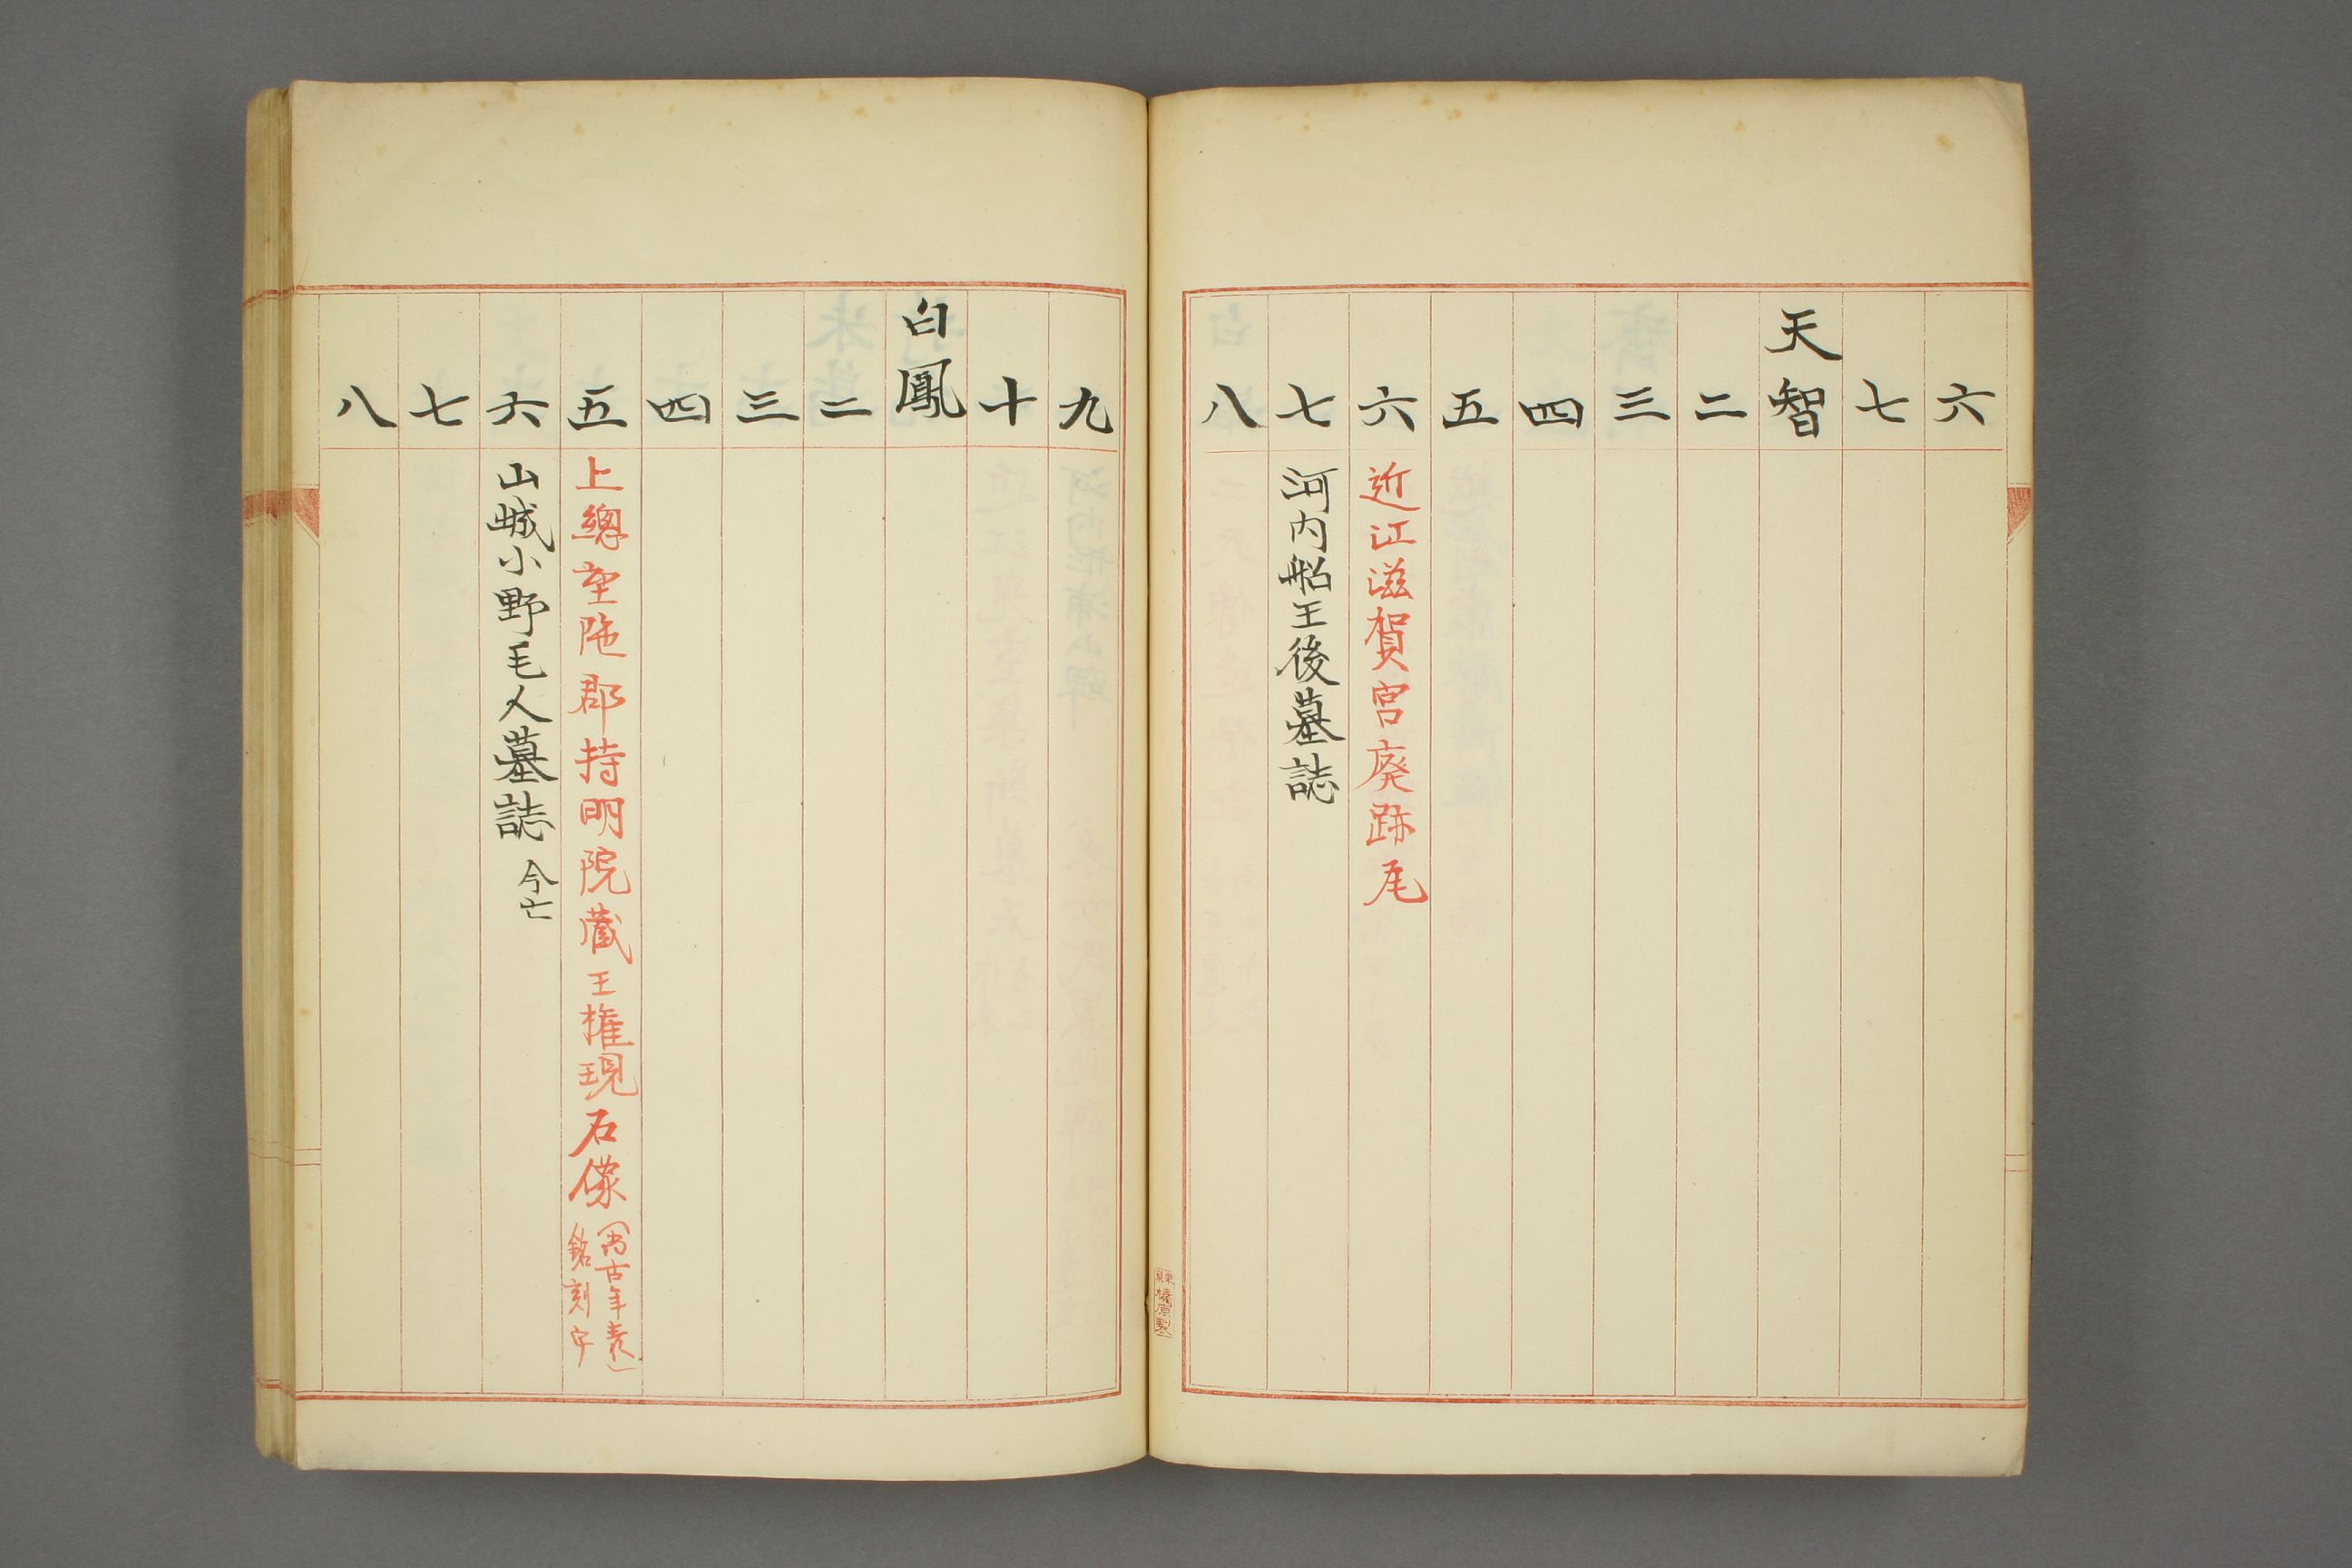 六
七
天智
二
三
四
五
六 近江滋賀宮廃跡瓦
七 河内船王後墓誌
八
東京 榛原製
九
十
白鳳
二
三
四
五 上總望陀郡持明院蔵王権現石像 (尚古年表) 銘刻字
六 山城小野毛人墓誌 今亡
七
八